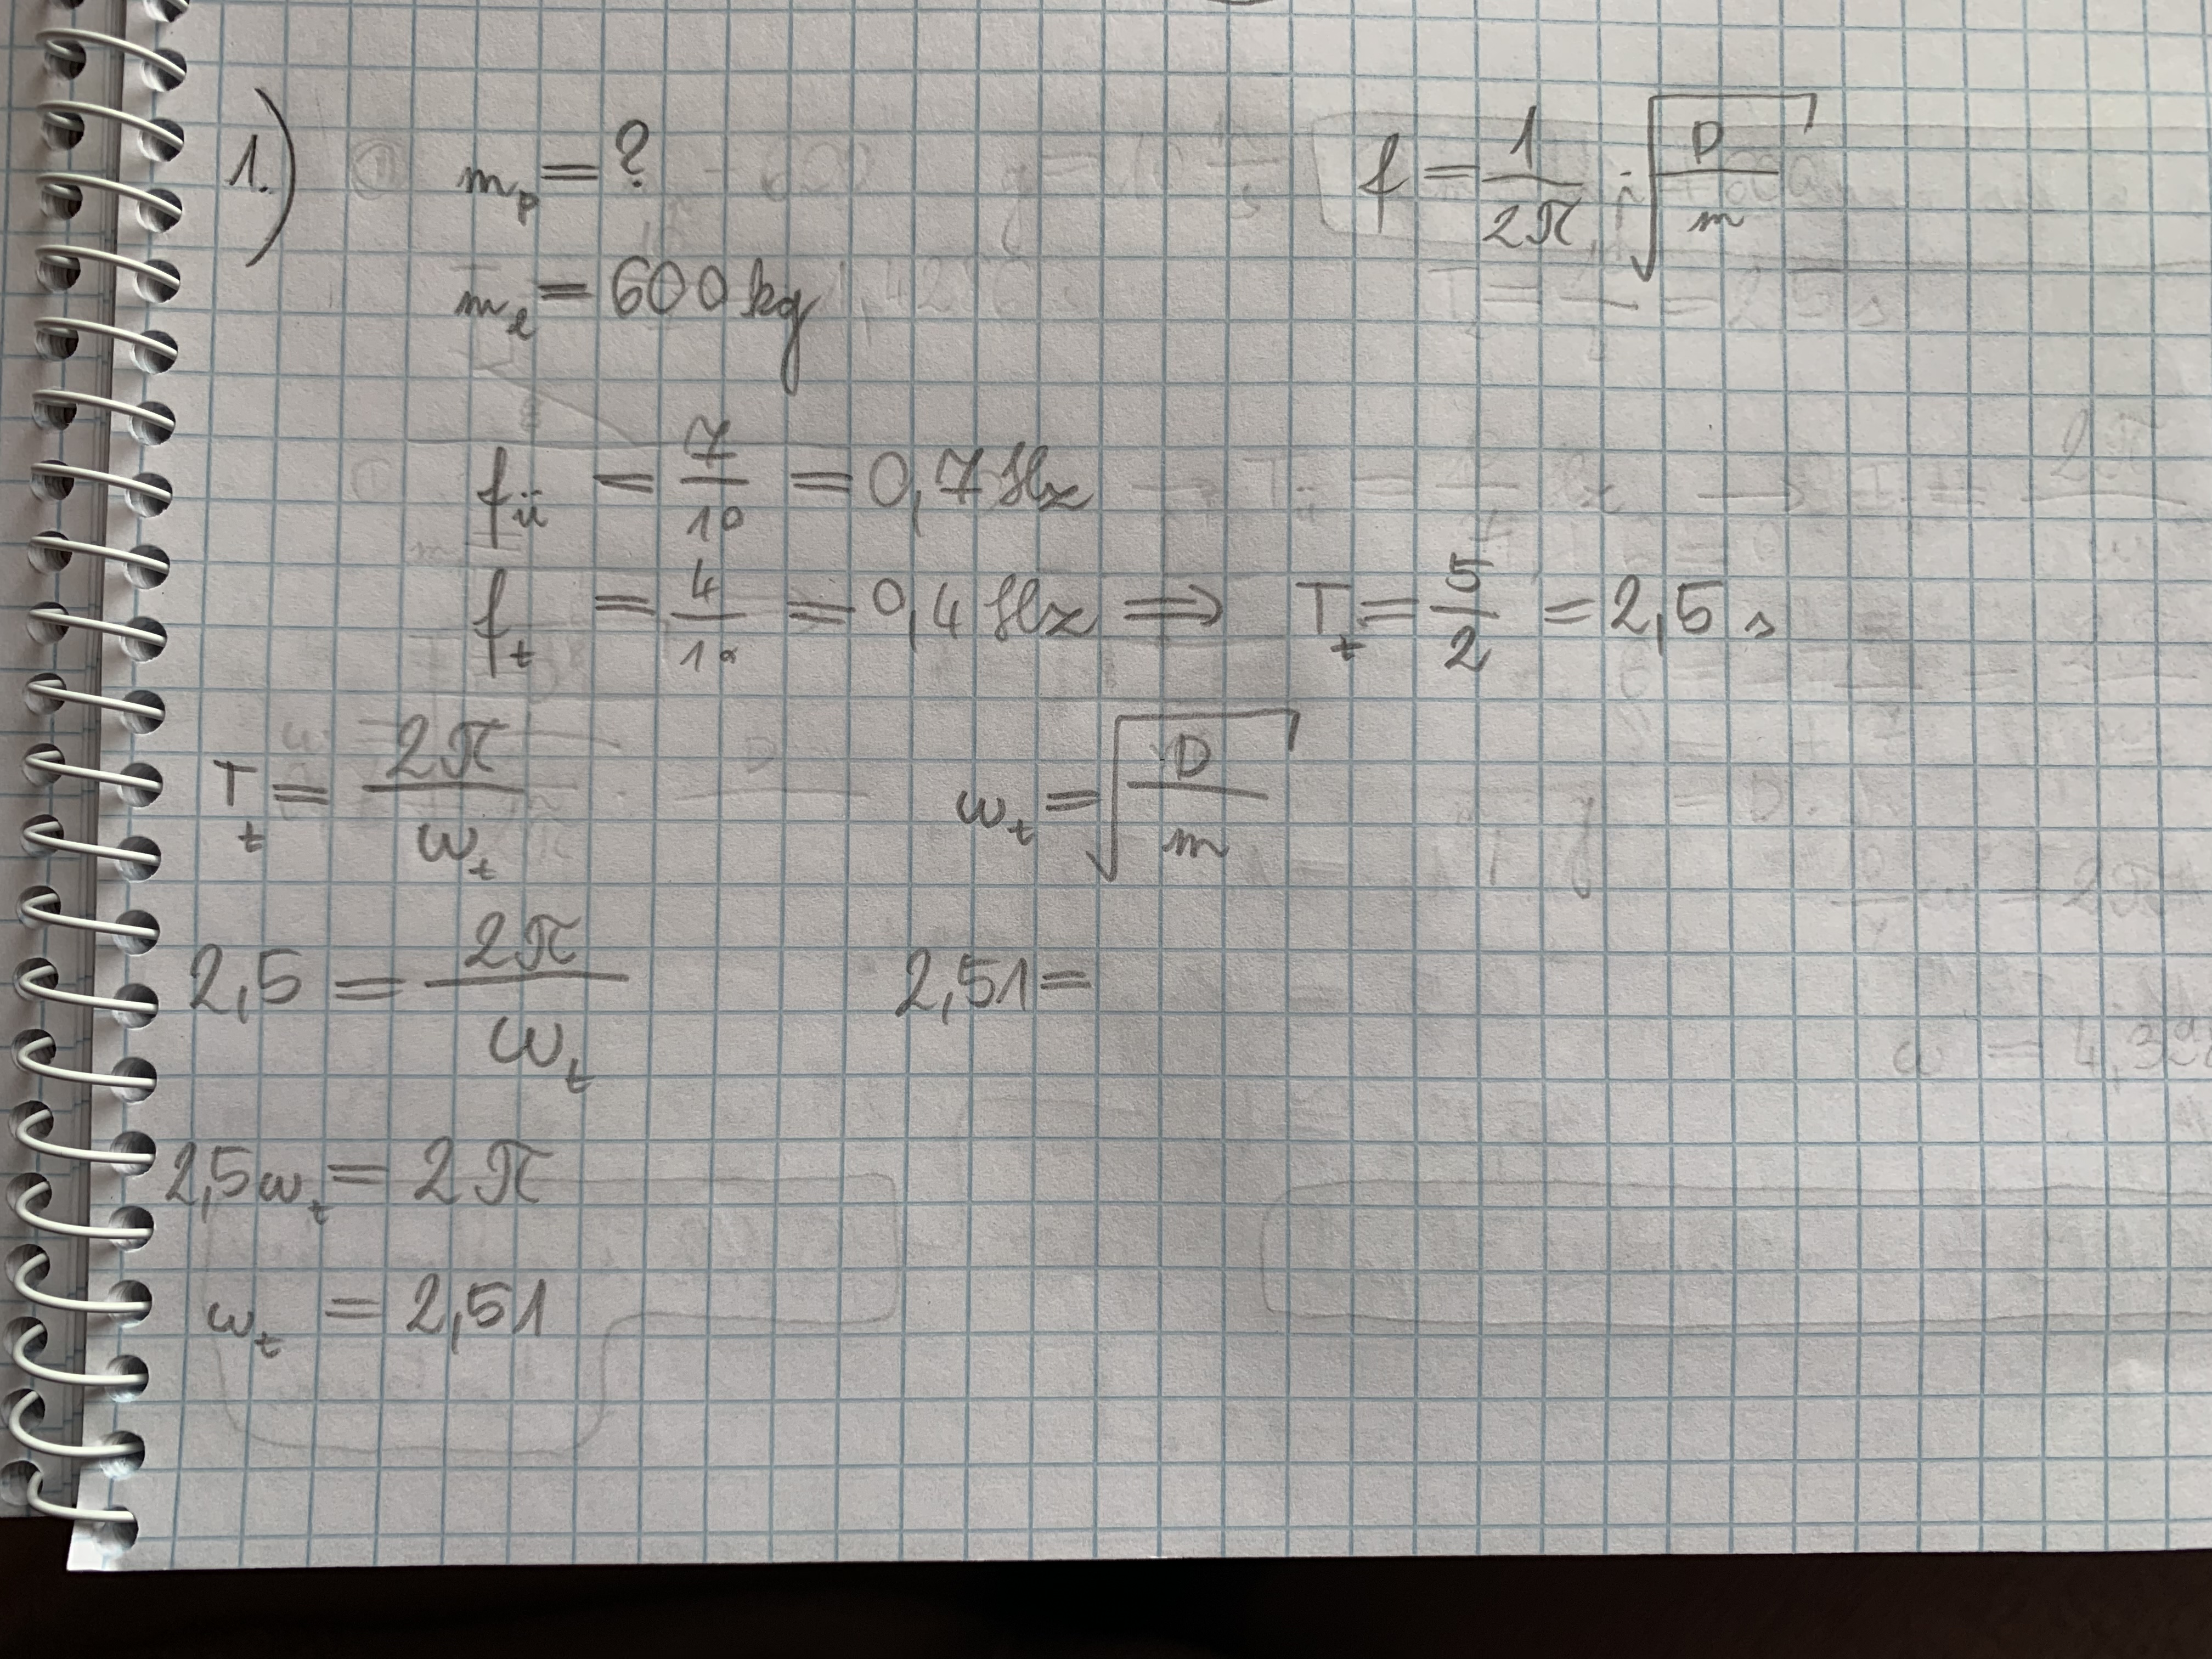 1.) m_p = ? f = 1/2π · √(D/m)
m_l = 600 kg
f_ü = 7/10 = 0,7 Hz
f_t = 4/10 = 0,4 Hz ⟹ T_t = 5/2 = 2,5 s
T_t = 2π/ω_t ω_t = √(D/m)
2,5 = 2π/ω_t 2,51 =
2,5ω_t = 2π
ω_t = 2,51